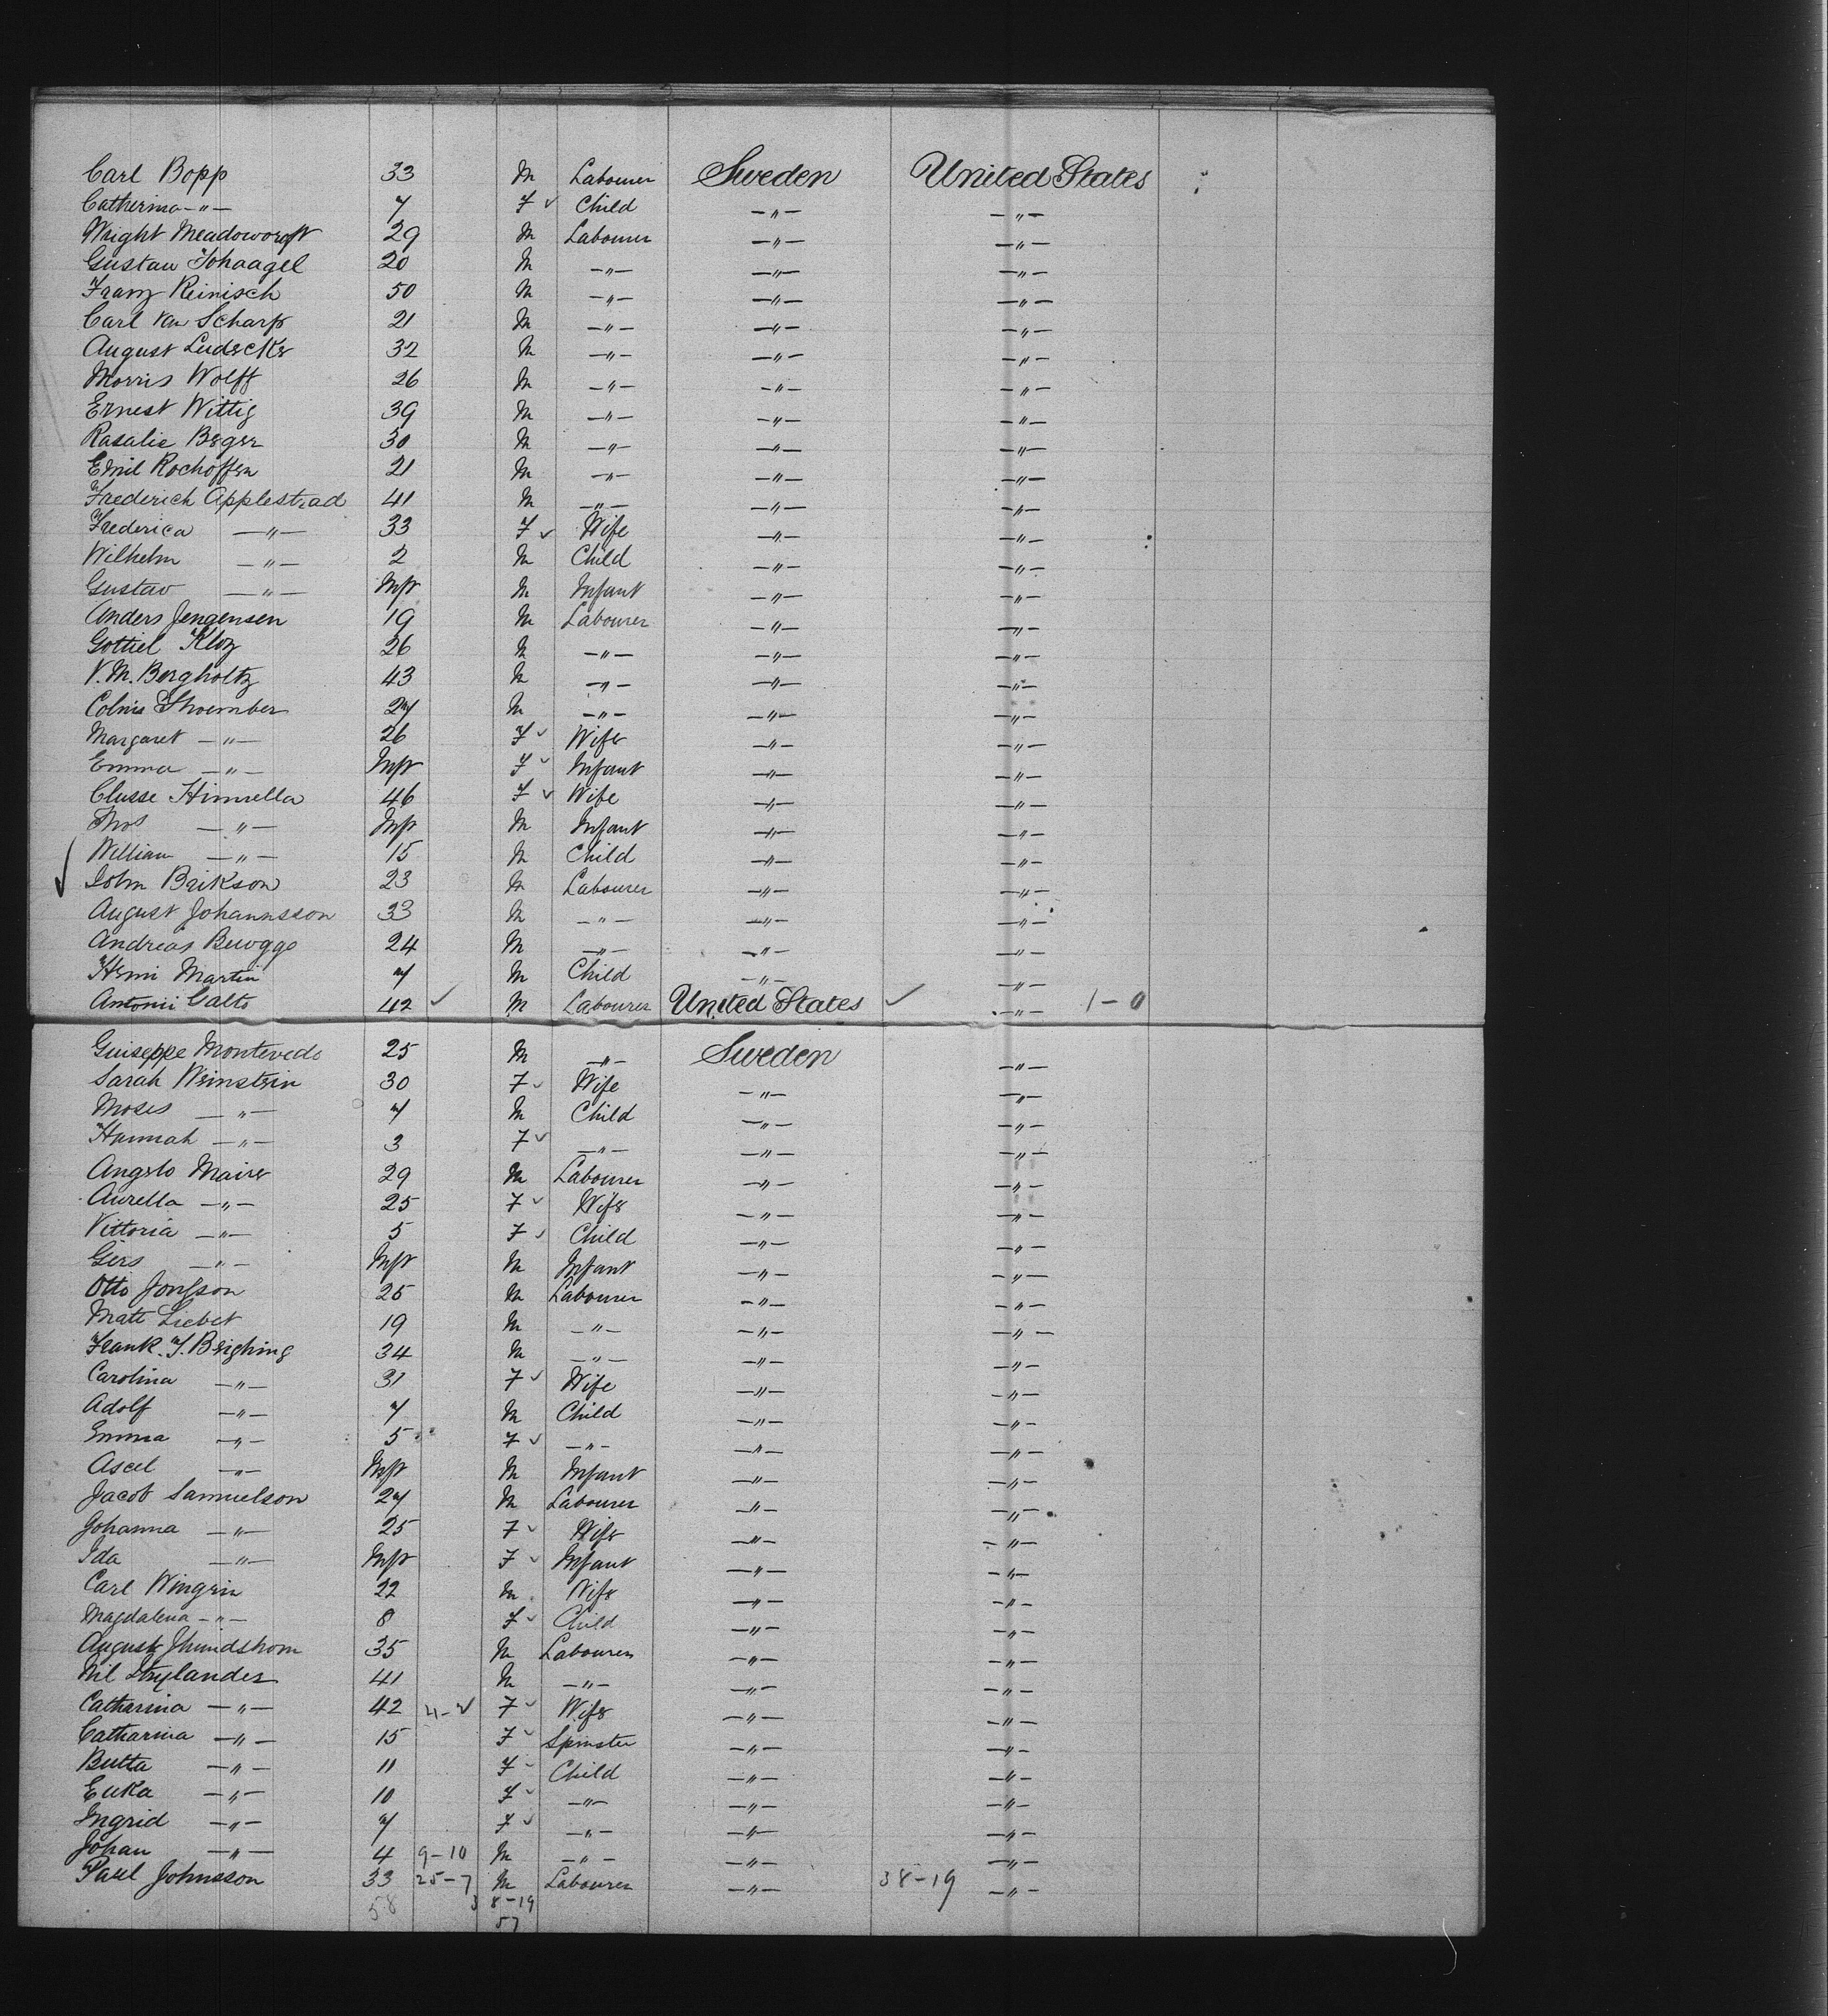 Carl Bopp 33 M Labourer Sweden United States
Catherina -"- 7 F ✓ Child -"- -"-
Wright Meadowcroft 29 M Labourer -"- -"-
Gustav Schaagel 20 M -"- -"- -"-
Franz Reinisch 50 M -"- -"- -"-
Carl Van Scharp 21 M -"- -"- -"-
August Ludecke 32 M -"- -"- -"-
Morris Wolff 26 M -"- -"- -"-
Ernest Wittig 39 M -"- -"- -"-
Rasalie Beger 30 M -"- -"- -"-
Emil Rochoffen 21 M -"- -"- -"-
Frederich Applestead 41 M -"- -"- -"-
Frederica -"- 33 F ✓ Wife -"- -"-
Wilhelm -"- 2 M Child -"- -"-
Gustav -"- Inft M Infant -"- -"-
Anders Jengensen 19 M Labourer -"- -"-
Gottiel Kloz 26 M -"- -"- -"-
V. M. Bergholtz 43 M -"- -"- -"-
27 M -"- -"- -"-
Margaret -"- 26 F ✓ Wife -"- -"-
Emma -"- Inft F ✓ Infant -"- -"-
Clusse Himella 46 F ✓ Wife -"- -"-
Thos -"- Inft M Infant -"- -"-
William -"- 15 M Child -"- -"-
✓ John Brikson 23 M Labourer -"- -"-
August Johannsson 33 M -"- -"- -"-
Andreas 24 M -"- -"- -"-
Henri Martin 7 M Child -"- -"-
Antonii Galto 42 ✓ M Labourer United States ✓ -"- 1-0
Guiseppe Montevedo 25 M -"- Sweden -"-
Sarah Weinstein 30 F ✓ Wife -"- -"-
Moses -"- 7 M Child -"- -"-
Hannah -"- 3 F ✓ -"- -"- -"-
Angelo Maire 29 M Labourer -"- -"-
Aurella -"- 25 F ✓ Wife -"- -"-
Vittoria -"- 5 F ✓ Child -"- -"-
Gers -"- Inft M Infant -"- -"-
Otto Jonsson 25 M Labourer -"- -"-
Matt Liebet 19 M -"- -"- -"-
Frank. J. Brighing 34 M -"- -"- -"-
Carolina -"- 31 F ✓ Wife -"- -"-
Adolf -"- 7 M Child -"- -"-
Emma -"- 5 F ✓ -"- -"- -"-
Ascel -"- Inft M Infant -"- -"-
Jacob Samuelson 27 M Labourer -"- -"-
Johanna -"- 25 F ✓ Wife -"- -"-
Ida -"- Inft F ✓ Infant -"- -"-
Carl Wingrin 22 M Wife -"- -"-
Magdalena -"- 8 F ✓ Child -"- -"-
August 35 M Labourer -"- -"-
Nil 41 M -"- -"- -"-
Catharina -"- 42 4-✓ F ✓ Wife -"- -"-
Catharina -"- 15 F ✓ Spinster -"- -"-
Butta -"- 11 F ✓ Child -"- -"-
Euka -"- 10 F ✓ -"- -"- -"-
Ingrid -"- 7 F ✓ -"- -"- -"-
Johan -"- 4 9-10 M -"- -"- -"-
Paul Johnsson 33 25-7 M Labourer -"- 38-19 -"-
58 38-19
57